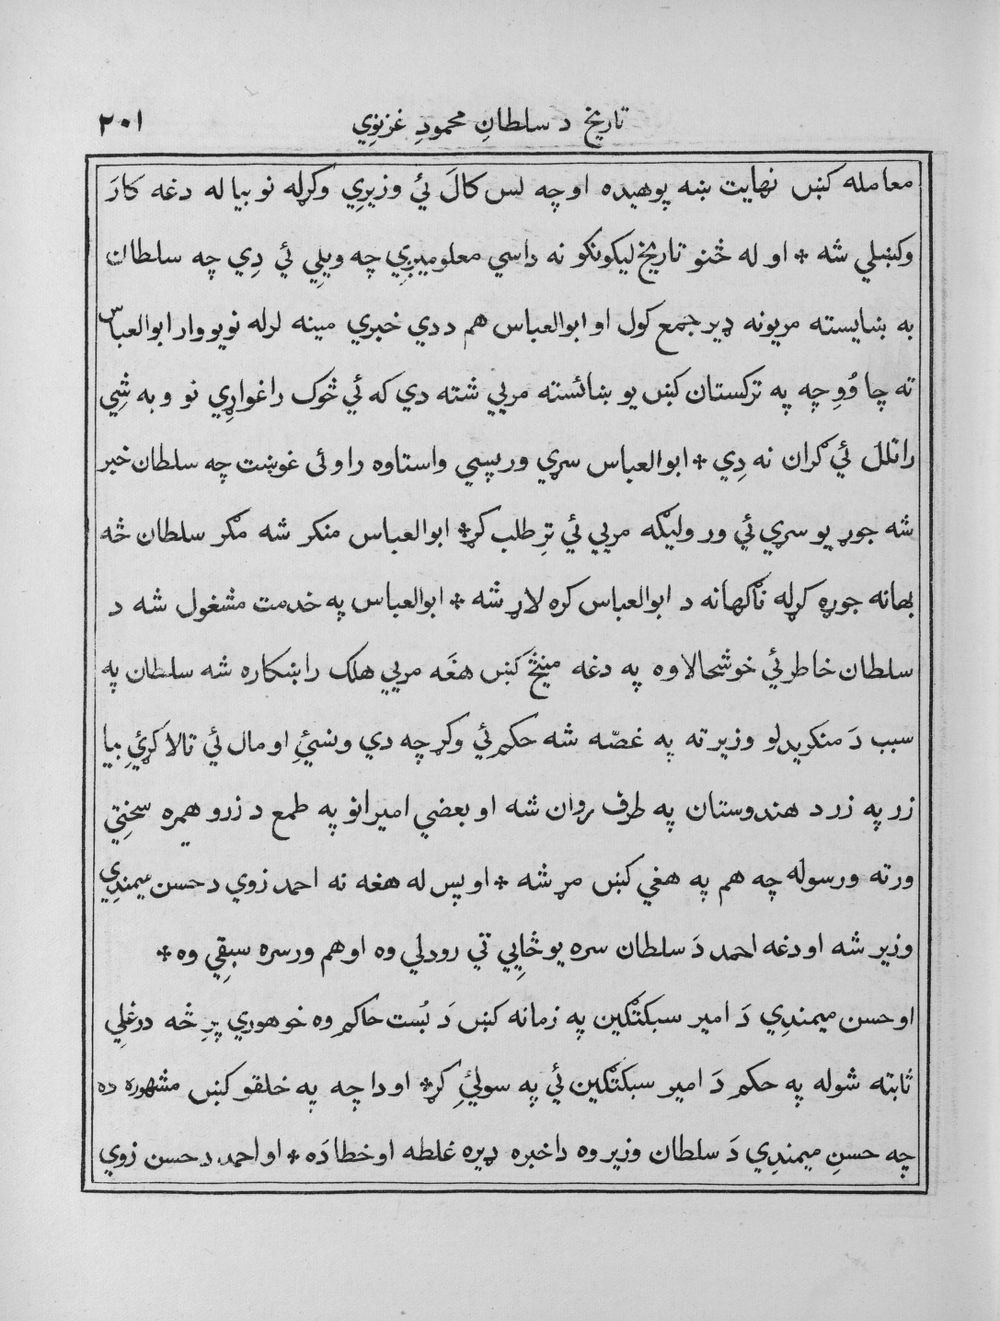 تاریخ د سلطانِ محمودِ غزنوِي ٢٠١
معامله کښں نهایت ښه پوهیده او چه لس کالَ ئي وزیرِي وکړله نو بیا له دغه کارَ
وکښلي شه * او له څنو تاریخ لیکونکو نه داسي معلومیږِي چه ویلِي ئي دِي چه سلطان
به ښایسته مریونه ډیر جمع کول او ابوالعباس هم د دي خبري مینه لرله نو یو وار ابوالعباس
ته چا وُوِ چه په ترکستان کښں یو ښائسته مریي شته دي که ئي څوک راغواړِي نو وبه شِي
راتلل ئي ګران نه دِي * ابوالعباس سړي ورپسي واستاوه راوئی غوښت چه سلطان خبر
شه جوړ یو سړي ئي ور ولیګه مریي ئي ترِ طلب کړ * ابوالعباس منکر شه مګر سلطان څه
بهانه جوړه کړله ناګهانه د ابوالعباس کره لاړ شه * ابوالعباس په خدمت مشغول شه د
سلطان خاطر ئي خوشحالاوه په دغه مینځ کَښں هغَه مریي هلک راښکاره شه سلطان په
سبب دَ منکریدلو وزیر ته په غصّه شه حکم ئي وکړ چه دي ونسئِ او مال ئي تالا کړئِ بیا
زر په زر د هندوستان په طرف روان شه او بعضي امیرانو په طمع د زرو همره سختِي
ورته ورسوله چه هم په هغي کښں مړ شه * او پس له هغه نه احمد زوي د حسن میمندِي
وزیر شه او دغه احمد دَ سلطان سره یو ځاِیي تي رودلي وه او هم ورسره سبقِي وه *
او حسن میمندِي دَ امیر سبکتګین په زمانه کښں دَ بُست حاکم وه خو هوري پرِ څه دروغلِي
ثابته شوله په حکم دَ امیر سبکتګین ئي په سولئِ کړ * او دا چه په خلقو کښں مشهوره ده
چه حسنِ میمندِي دَ سلطان وزیر وه دا خبره ډیره غلطه او خطا دَه * او احمد د حسن زوي